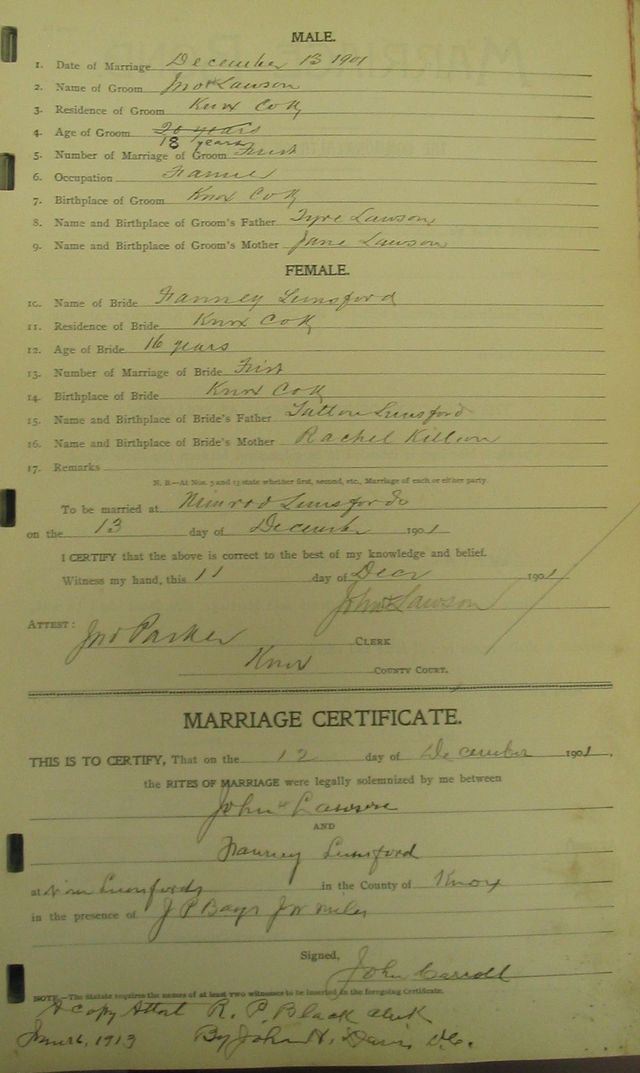 MALE.
1. Date of Marriage December 13 1901
2. Name of Groom Jno Lawson
3. Residence of Groom Knox Co Ky
4. Age of Groom 20 years
18 years
5. Number of Marriage of Groom First
6. Occupation Farmer
7. Birthplace of Groom Knox Co Ky
8. Name and Birthplace of Groom's Father Tyre Lawson
9. Name and Birthplace of Groom's Mother Jane Lawson
FEMALE.
10. Name of Bride Fanney Lunsford
11. Residence of Bride Knox Co Ky
12. Age of Bride 16 years
13. Number of Marriage of Bride First
14. Birthplace of Bride Knox Co Ky
15. Name and Birthplace of Bride's Father Lunsford
16. Name and Birthplace of Bride's Mother Rachel Killion
17. Remarks
N. B.—At Nos. 5 and 13 state whether first, second, etc., Marriage of each or either party.
To be married at Nimrod Lunsfords
on the 13 day of December 1901
I CERTIFY that the above is correct to the best of my knowledge and belief.
Witness my hand, this 11 day of Decr 1901
John Lawson
ATTEST: Jno Parker CLERK
Knox COUNTY COURT.
MARRIAGE CERTIFICATE.
THIS IS TO CERTIFY, That on the 12 day of December 1901.
the RITES OF MARRIAGE were legally solemnized by me between
John Lawson
AND
Fanney Lunsford
at Lunsfords in the County of Knox
in the presence of J P Bays J W Miles
Signed,
John Carroll
NOTE.—The Statute requires the names of at least two witnesses to be inserted in the foregoing Certificate.
A copy Attest R. P. Black Clerk
1913 By John H. Davis D.C.